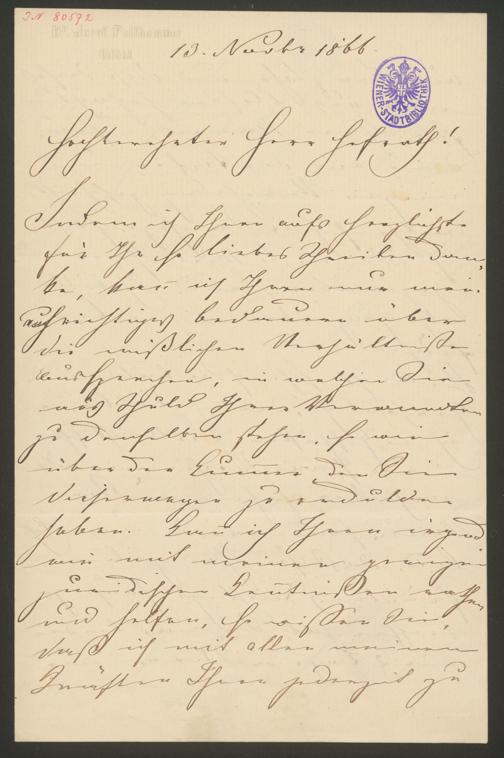 J.N 80592
13. Novbr 1866.
WIENER-STADTBIBLIOTHEK
Hochverehrter Herr Hofrath!
Indem ich Ihnen aufs herzlichste
für Ihr so liebes Schreiben dan-
ke, kan ich Ihnen nur mein
aufrichtiges bedauern über
die mißlichen Verhältniße
aussprechen, in welchen Sie
aus Schuld Ihrer Verwandten
zu denselben stehen, so wie
über den Kummer den Sie
dieserwegen zu erdulden
haben. Kan ich Ihnen irgend
wie mit meinen geringen
juridischen Kentnißen rathen
und helfen, so wissen Sie,
daß ich mit allen meinen
Kräften Ihnen jederzeit zu